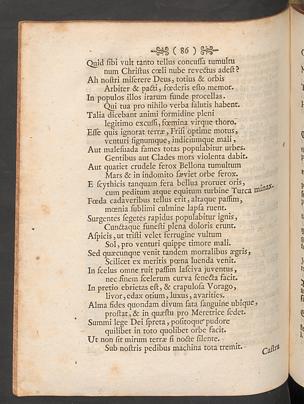 ( 86 )
Quid sibi vult tanto tellus concussa tumultu
num Christus cœli nube revectus adest?
Ah nostri miserere Deus, totius & orbis
Arbiter & pacti, fœderis esto memor.
In populos illos iratum funde procellas.
Qui tua pro nihilo verba salutis habent.
Talia dicebant animi formidine pleni
legitimo excussi, fœmina virque thoro.
Esse quis ignorat terræ, Frisi optime motus,
venturi signumque, indiciumque mali.
Aut malesuada fames totas populabitur urbes.
Gentibus aut Clades mors violenta dabit.
Aut quatiet crudele ferox Bellona tumultum
Mars & in indomito sæviet orbe ferox.
E scythicis tanquam fera bellua proruet oris,
cum peditum atque equitum turbine Turca minax.
Fœda cadaveribus tellus erit, altaque passim,
mœnia sublimi culmine lapsa ruent.
Surgentes segetes rapidus populabitur ignis,
Cunctaque funesti plena doloris erunt.
Aspicis, ut tristi velet ferrugine vultum
Sol, pro venturi quippe timore mali.
Sed quæcunque venit tandem mortalibus ægris,
Scilicet ex meritis pœna luenda venit.
In scelus omne ruit passim lasciva juventus,
nec finem scelerum curva senecta facit.
In pretio ebrietas est, & crapulosa Vorago,
livor, edax otium, luxus, avarities.
Alma fides quondam divum sata sanguine ubique,
prostat, & in quæstu pro Meretrice sedet.
Summi lege Dei spreta, positoque pudore
quilibet in toto quolibet orbe facit.
Ut non sit mirum terræ si nocte silente.
Sub nostris pedibus machina tota tremit.
Castra